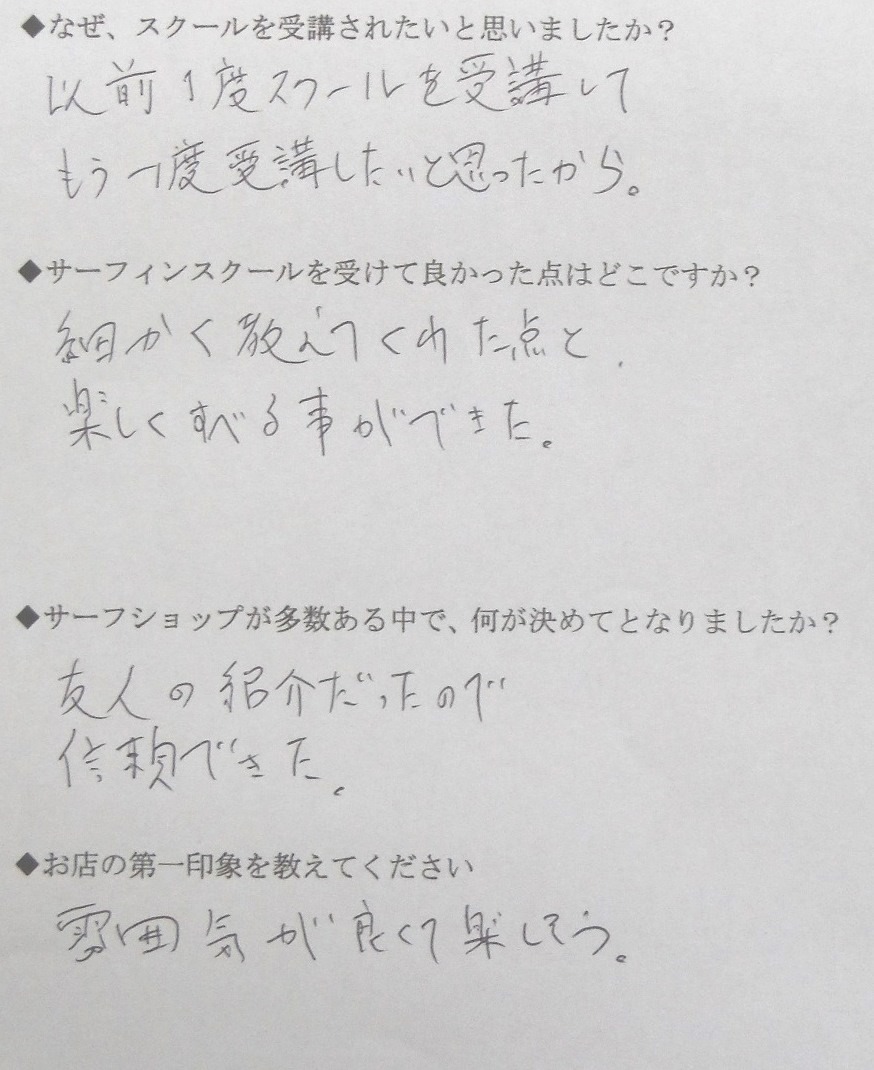 ◆なぜ、スクールを受講されたいと思いましたか？
以前1度スクールを受講して
もう一度受講したいと思ったから。
◆サーフィンスクールを受けて良かった点はどこですか？
細かく教えてくれた点と、
楽しくすべる事ができた。
◆サーフショップが多数ある中で、何が決めてとなりましたか？
友人の紹介だったので
信頼できた。
◆お店の第一印象を教えてください
雰囲気が良くて楽しそう。